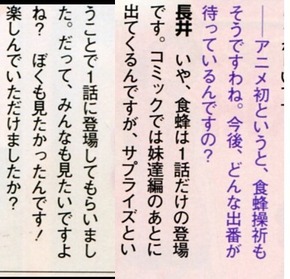 ――アニメ初というと、食蜂操祈も
そうですわね。今後、どんな出番が
待っているんですの？
長井　いや、食蜂は1話だけの登場
です。コミックでは妹達編のあとに
出てくるんですが、サプライズとい
うことで1話に登場してもらいまし
た。だって、みんなも見たいですよ
ね？　ぼくも見たかったんです！
楽しんでいただけましたか？